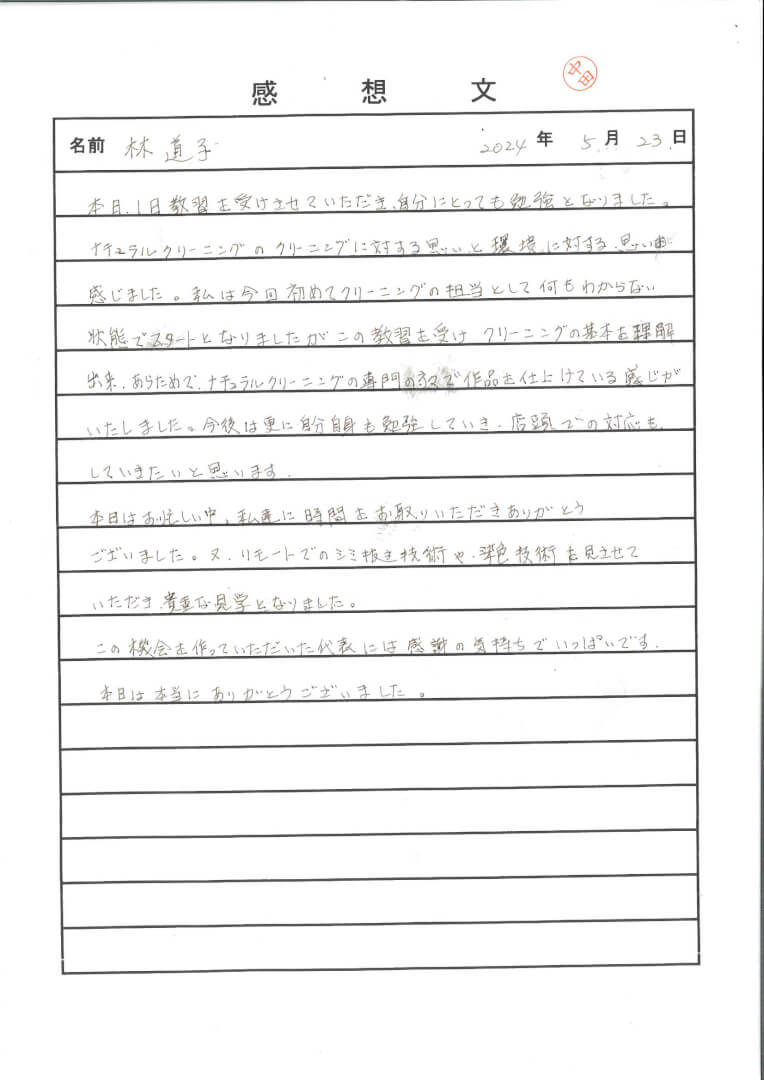 感想文
中田
名前 林 道子 2024年 5月 23日
本日、1日教習を受けさせていただき、自分にとっても勉強となりました。
ナチュラルクリーニングのクリーニングに対する思いと環境に対する、思い
感じました。私は今回初めてクリーニングの担当として何もわからない
状態でスタートとなりましたがこの教習を受け クリーニングの基本を理解
出来、あらためて、ナチュラルクリーニングの専門の で作品を仕上げている感じが
いたしました。今後は更に自分自身も勉強していき、店頭での対応も
していきたいと思います。
本日はお忙しい中、私達に時間をお取りいただきありがとう
ございました。又、リモートでのシミ抜き技術や、染色技術を見させて
いただき、貴重な見学となりました。
この機会を作っていただいた代表には感謝の気持ちでいっぱいです。
本日は本当にありがとうございました。